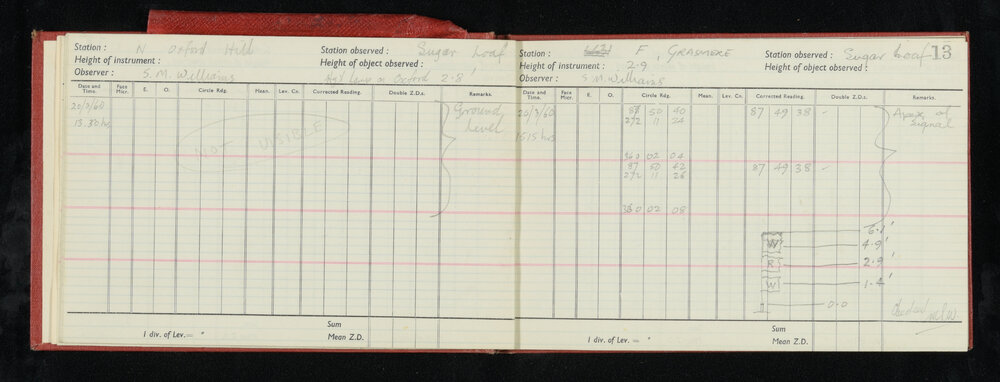 Station : N Oxford Hill Station observed : Sugar Loaf
Height of instrument : Height of object observed :
Observer : S.M. Williams Oxford 2.8'
Date and Time. Face Micr. E. O. Circle Rdg. Mean. Lev. Cn. Corrected Reading. Double Z.D.s. Remarks.
20/3/60 Ground
13.30hrs level
NOT VISIBLE
Sum
1 div. of Lev.= " Mean Z.D.
Station : F, GRASMERE Station observed : Sugar Loaf 13
Height of instrument : 2.9 Height of object observed :
Observer : S.M. Williams
Date and Time. Face Micr. E. O. Circle Rdg. Mean. Lev. Cn. Corrected Reading. Double Z.D.s. Remarks.
20/3/60 87 50 40 87 49 38 - Apex of
272 11 24 Signal
1515 hrs
360 02 04
87 50 42 87 49 38 -
272 11 26
360 02 08
6.1'
W 4.9'
R 2.9'
W 1.4'
0.0
Sum
1 div. of Lev.= " Mean Z.D.